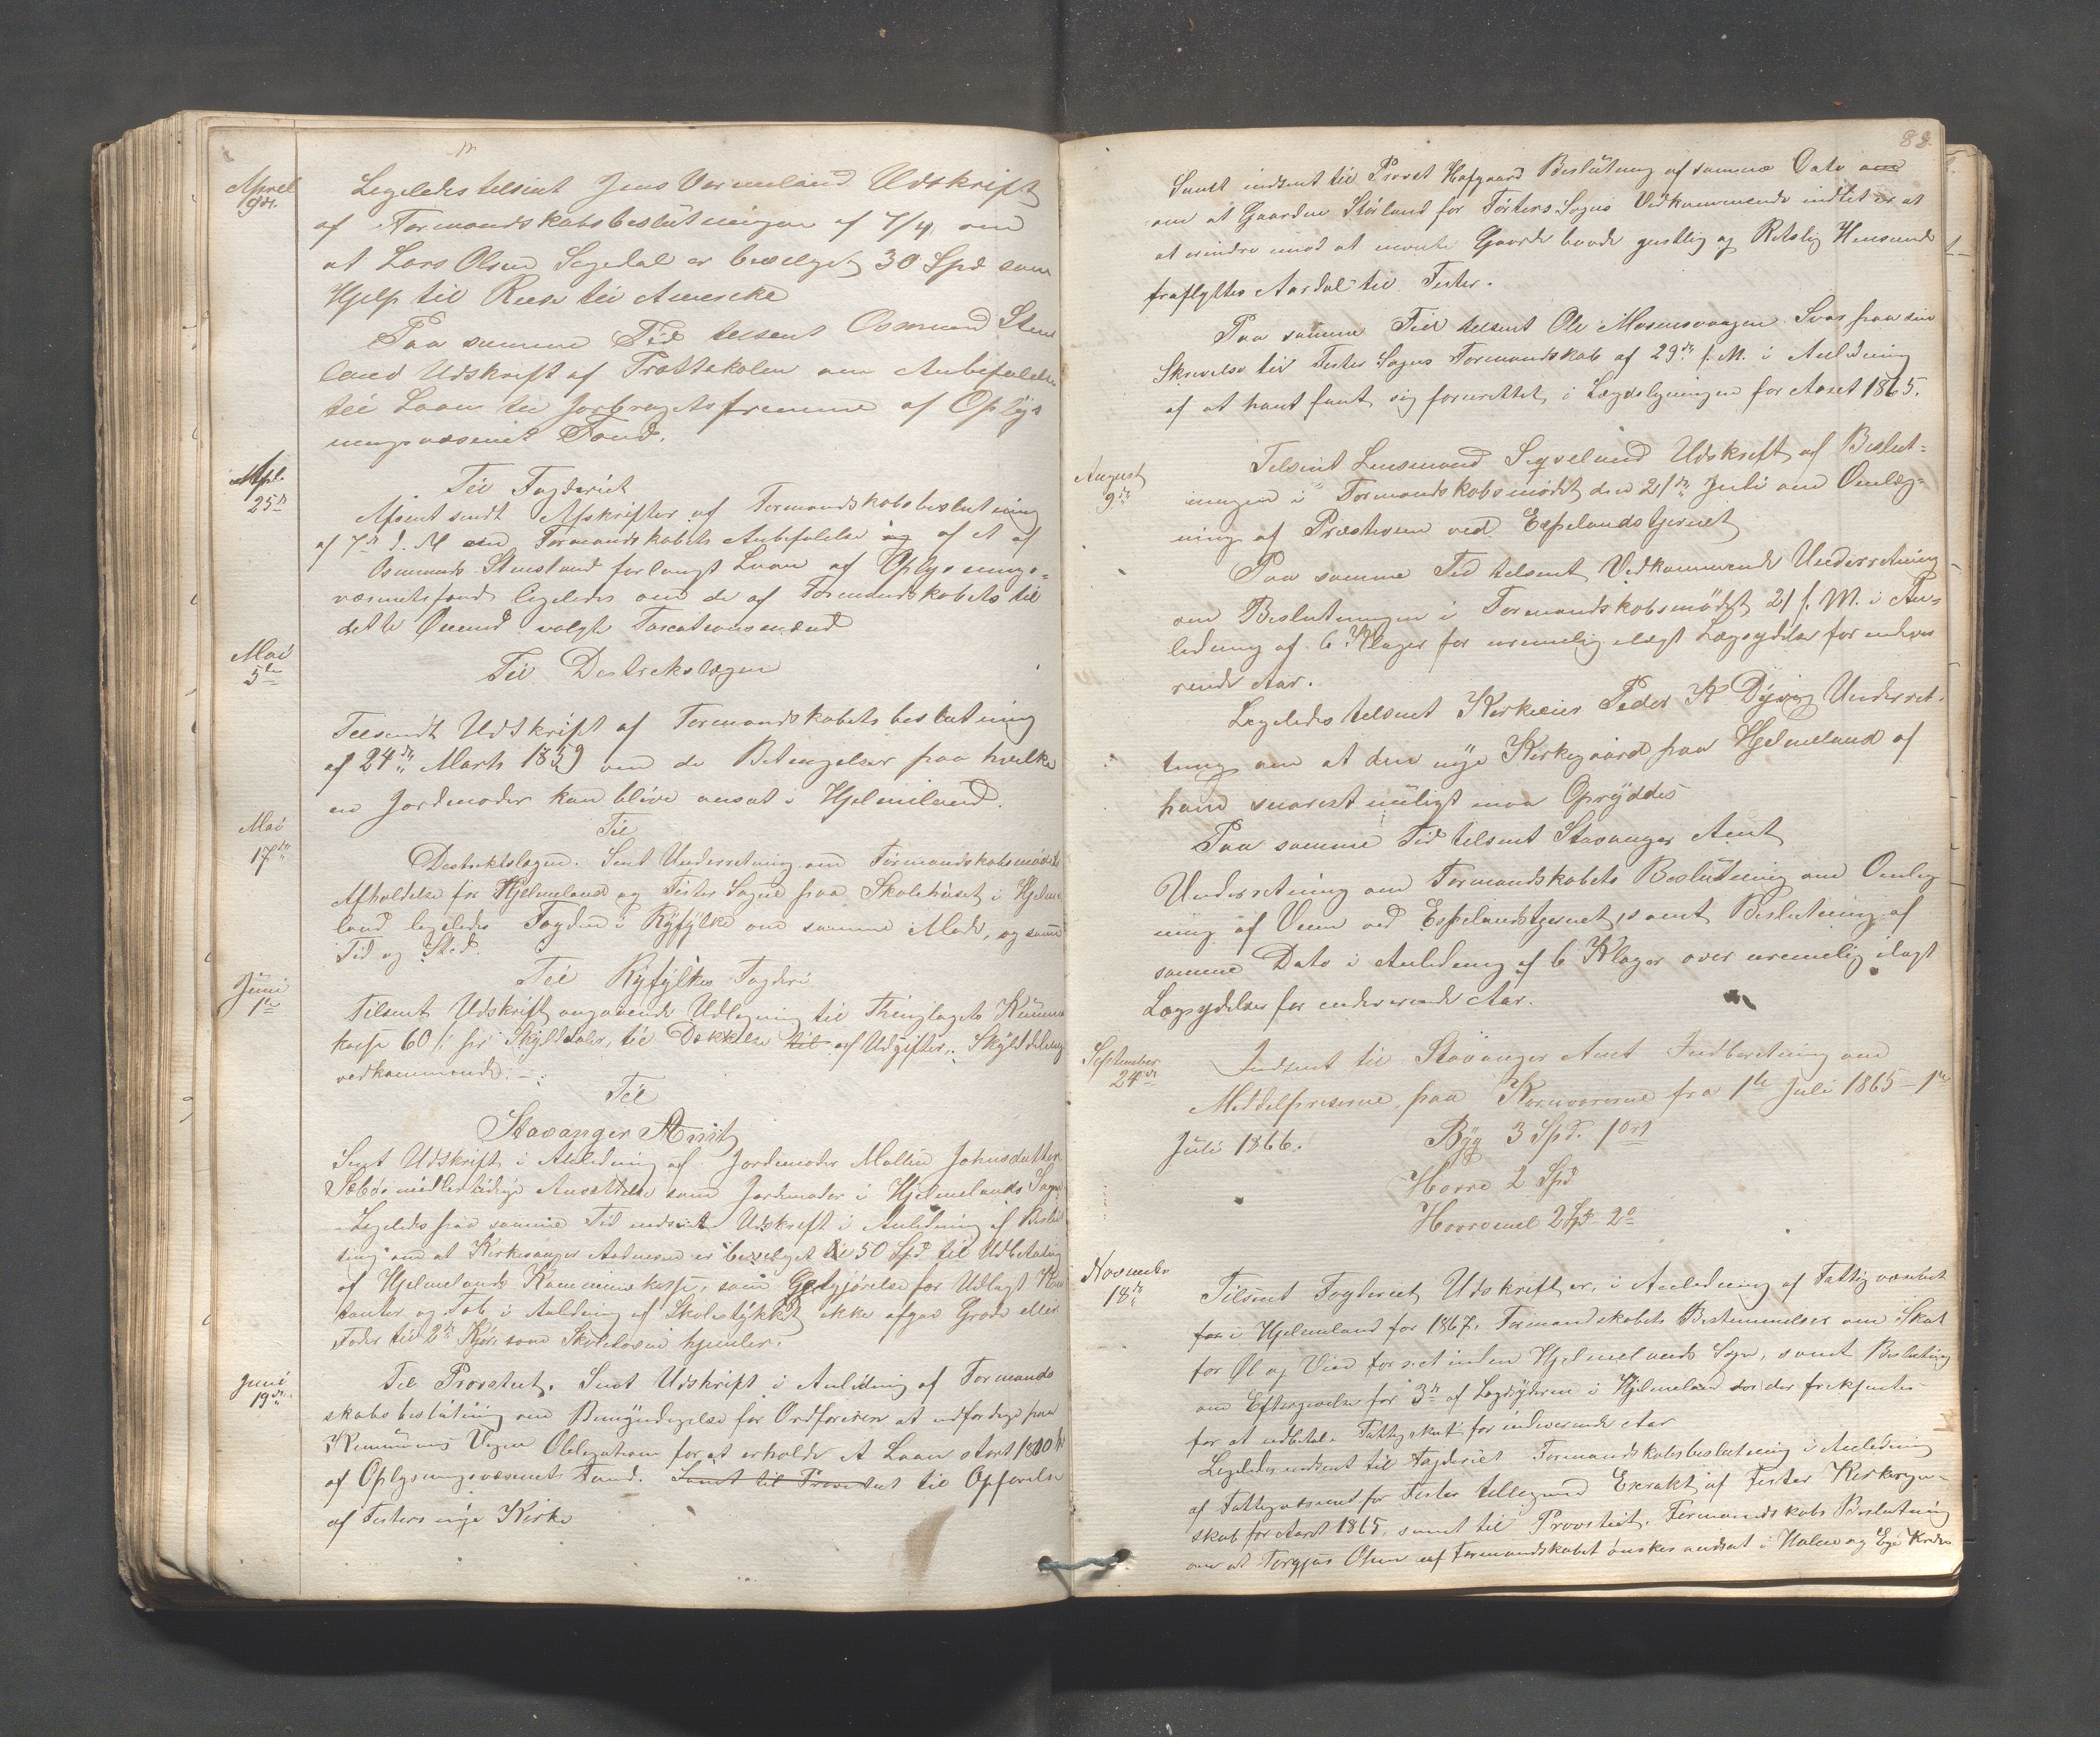 Aprel
9de
Legeledes telsent Jens Vormeland Udskrift
af Formandskabsbeslutningen af 7/4 om
at Lars Olsen Segedal er bevelget 30 Spd som
Hjelp til Reise til Amerika
Paa samme Tid telsent Osmund Stens
land Udskrift af Prottekolen om Anbefalelse
til Laan til Jorbrugets fremme af Oplys
ningsvæsenet Fond.
Apl.
25d
Til Fogderiet
Afsent sendt Afskrifter af Formandskabsbeslutning
af 7de d. M om Formandskabets Anbefalelse og af et af
Osmunds Stensland forlangt Laan af Oplysnings-
væsnetsfond legeledes om de af Formandskabets til
dette Øiemed valgte Taxationsmænd
Mai
5te
Til Destrektslægen
Telsendt Udskrift af Formandskabets beslutning
af 24de Marts 1859 om de Betingelser paa hvilke
en Jordmoder kan blive ansat i Hjelmeland.
Mai
17de
Til
Destrektslægen. Sent Underretning om Formandskabsmødets
Afholdelse for Hjelmeland og Fister Sogne paa Skolehuset i Hjelme
land legeledes Fogden i Ryfylke om samme Møde, og samme
Tid og Sted.
Juni
1te
Til Ryfylkes Fogderi
Tilsent Udskrift angaaende Udlegning til Thinglagets Kumune
kasse 60 s. pr Skylddaler, til Dækkelse til af Udgifter, Skylddeling
vedkommende.
Til
Stavanger Amt
Sent Udskrift i Anledning af Jordemoder Mallene Johnsdatter
Sæbøs medlertidige Ansættelse som Jordemoder i Hjelmelands Sogn
Legeledes paa samme Tid endsent Udskrift i Anledning af Beslut
ning om at Kirkesanger Aadnesen er bevelget til 50 Spd til Udbetaling
af Hjelmelands Kommunekasse, som Godtgjørelse for Udlagt Kon
tanter og Tab i Anledning af Skolestykket ikke afgav Grøde eller
Foder til 2de Kjør som Skoleloven hjemler.
Juni
19de
Til Provstiet. Sent Udskrift i Anledning af Formands
skabsbeslutning om Bemyndegelse for Ordføreren at udferdige paa
Kommunens Vegne Oblegation for at erholde et Laan stort 1800
af Oplysningsvæsenets Fond. Samt til Provstiet til Opførelse
af Fisters nye Kirke
83
Samt indsent til Provst Hofgaard Beslutning af samme Dato om
om at Gaarden Størland for Fisters Sogns Vedkommende indtet er at
at erindre imod at nevnte Gaard baade geistlig og Retslig Henseende
fraflyttes Aardal til Fister.
Paa samme Tid telsent Ole Mosnesvaagen Svar paa sin
Skrivelse til Fister Sogns Formandskab af 29de f. M. i Anledning
af at hant fant sig forurettet i Lægdslegningen for Aaret 1865.
August
9de
Telsent Lensmand Segvelund Udskrift af Beslut-
ningen i Formandskabsmødet den 21de Juli om Omlæg-
ning af Præsteveien ved Espelandstjernet
Paa samme Tid telsent Vedkommende Underretning
om Beslutningen i Formandskabsmødet 21 f. M. i An-
ledning af 6 Klager for uremelig ilægt Lægsydelse for indeværende
rende Aar.
Legeledes telsent Kirkeeier Peder K Dyvig Underret-
tning om at den nye Kirkegaard paa Hjelmeland af
ham snarest muligt maa Opryddes
Paa samme Tid telsent Stavanger Amt
Underretning om Formandskabets Beslutning om Omleg
ning af Veien ved Espelandstjernet, samt Beslutning af
samme Dato i Anledning af 6 Klager over uremelig ilagt
Lægsydelser for indeværende Aar.
September
24de
Indsent til Stavanger Amt Indberetning om
Meddelpreserne paa Kornvarerne fra 1te Juli 1865 – 1te
Juli 1866. Byg 3 Spd. 1 ort
Havre 2 Spd
Havremel 2 Spd 2 o
November
18de
Tilsent Fogderiet Udskrifter, i Anledning af Fattigvæsenet
for i Hjelmeland for 1867. Formandskabets Bestemmelser om Skat
for Øl og Vien forret inden Hjelmelands Sogn, samt Beslutning
om Eftergivelse for 3de af Lægdsyderne i Hjelmeland som der frekjentes
for at udbetale Fattigskat for indeværende Aar
Legeledes indsent til Fogderiet Formandskabsbeslutning i Anledning
af Fattigvæsenet for Fister tellegemed Exrakt af Fister Kirkeregn-
skab for Aaret 1865, samt til Provstiet. Formandskabs Beslutning
om at Torgjus Olsen af Formandskabet ønskes andsat i Halne og Eje Kreds